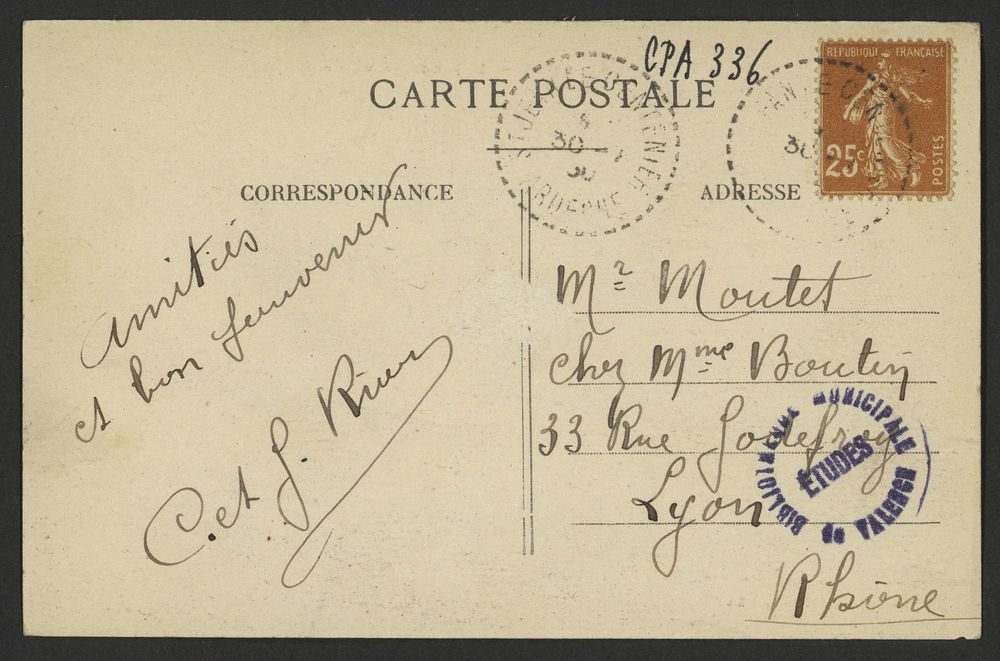 CPA 336
RÉPUBLIQUE FRANÇAISE
25c
POSTES
CARTE POSTALE
30
30
ARDECHE
CORRESPONDANCE
ADRESSE
Amitiés
et bon souvenir
C. et J.
Mr Moutet
chez Mme Boutin
33 Rue Godefroy
Lyon
Rhône
BIBLIOTHEQUE MUNICIPALE
ETUDES
VALENCE